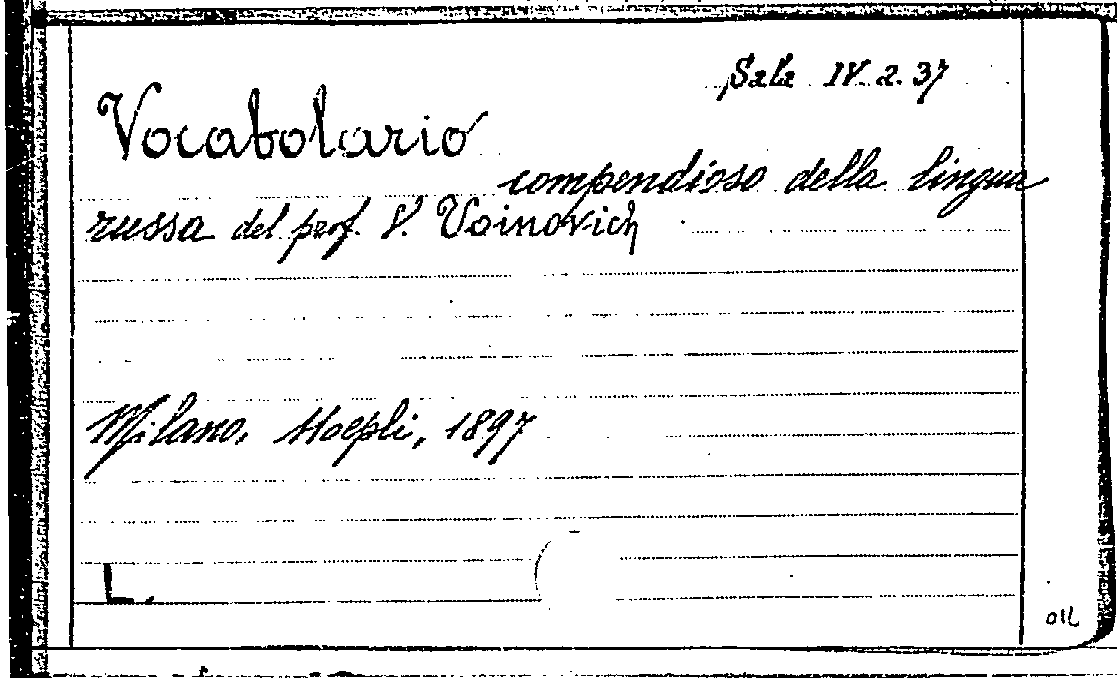 Sala IV. 2. 37
Vocabolario
compendioso della lingua
russa del prof. V. Voinovich
Milano. Hoepli, 1897
L.